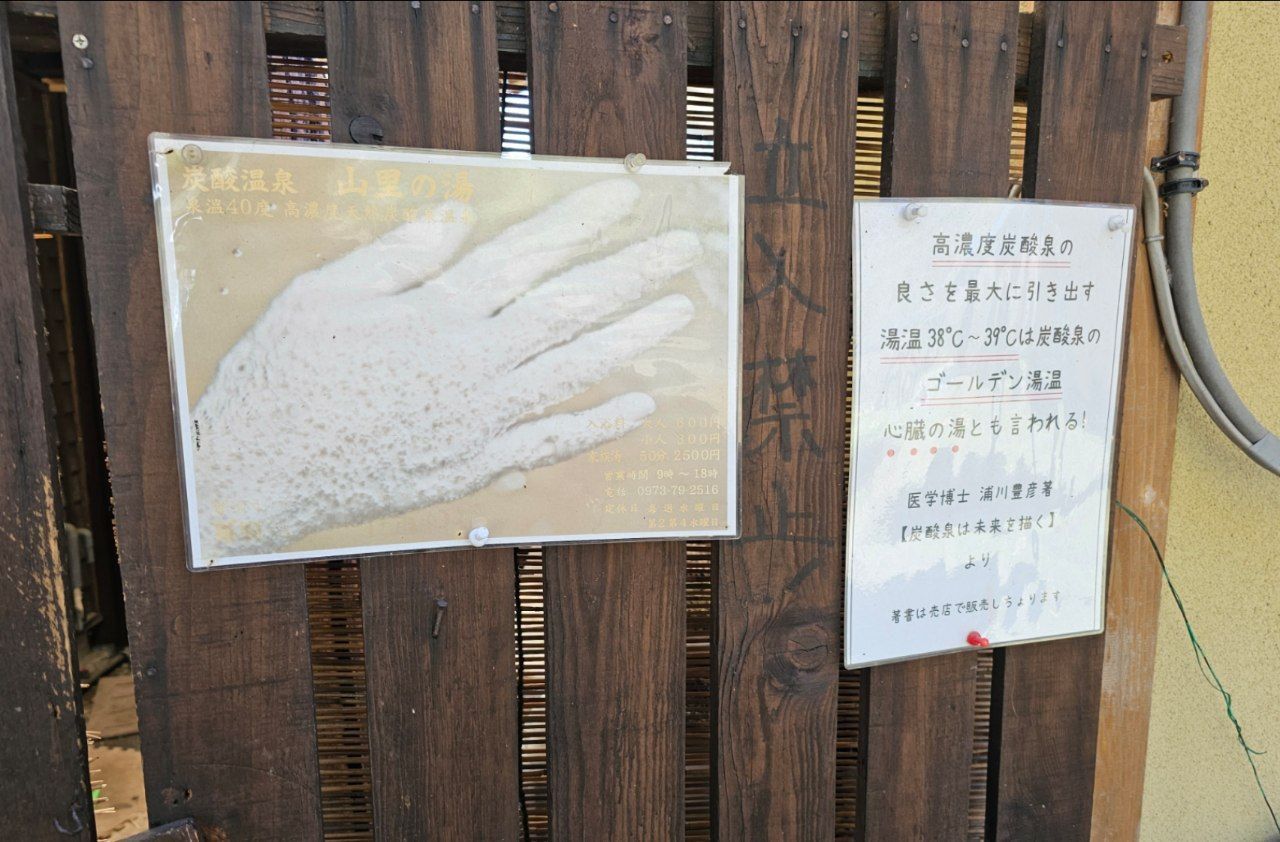 炭酸温泉 山里の湯
泉温40度 高濃度天然炭酸泉温泉
入浴料 大人 600円
小人 300円
家族湯 50分 2500円
営業時間 9時〜18時
電話 0973-79-2516
定休日 毎週水曜日
第2第4木曜日
立入禁止!
高濃度炭酸泉の
良さを最大に引き出す
湯温38℃〜39℃は炭酸泉の
ゴールデン湯温
心臓の湯とも言われる!
医学博士 浦川豊彦著
【炭酸泉は未来を描く】
より
著書は売店で販売しちょります